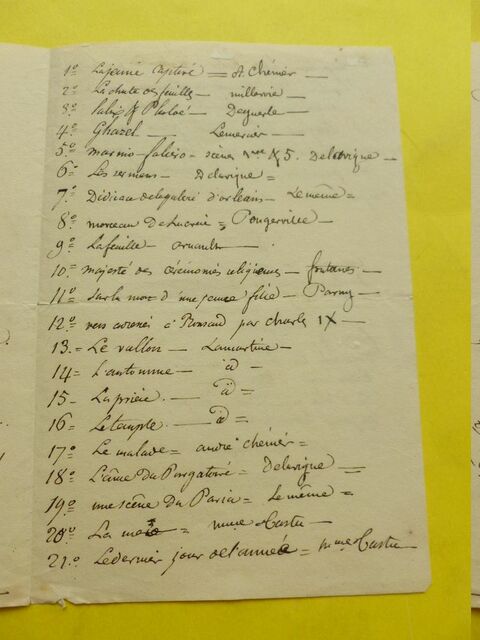 1º La jeune captive = A. Chénier —
2º La chute des feuilles — millevoie —
3º &  Phloé — Deguerle —
4º Ghazel. — Lemercier —
5º marino faliero — scènes 5. Delavigne —
6º Les — Delavigne =
7º Dédicace de la galerie d'orléans — Le même =
8º morceau de Lucrèce = Pongerville =
9º La feuille — arnault — .
10.= majesté des cérémonies religieuses — fontanes —
11º Sur la mort d'une jeune fille — Parny —
12º vers adressés à Ronsard par charles IX —
13.= Le vallon — Lamartine —
14= L'automne — id —
15— La prière. — id =
16— Le temple — id =
17º Le malade = andré chénier =
18º L'âme du Purgatoire = Delavigne =
19º une scène du Paria = Le même =
20º La — mme Tastu —
21.º Le dernier jour de l'année = mme Tastu —